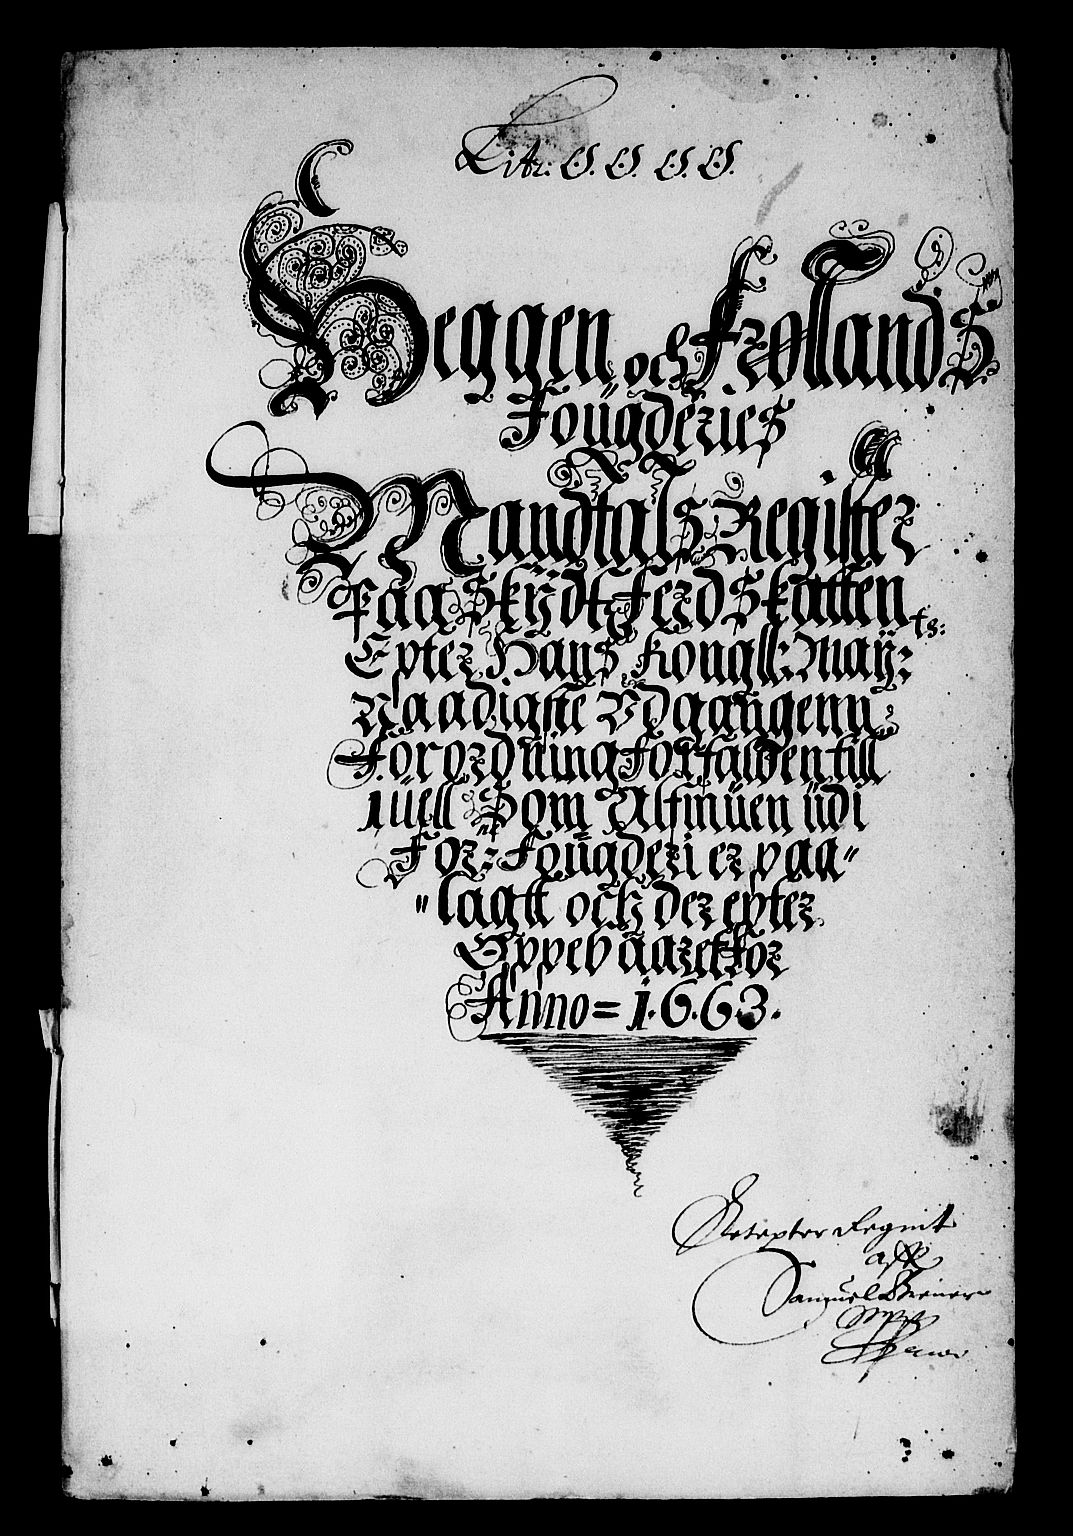 Litr: O. O. O. O.
Heggen och Frøllands
Foügderies
Mandtals Register
Paa Skÿdtz Ferd Skatten
Epter Hans Kongll: Maÿ:
Naadigste Vdgangenn
Forordning forfalden till
Som Almüen üdi
For: ne Foügderi er paa=
=lagtt och der epter
Oppeb aaret for
Anno = 1.6.6.3.
Regnit
aff
Samuel